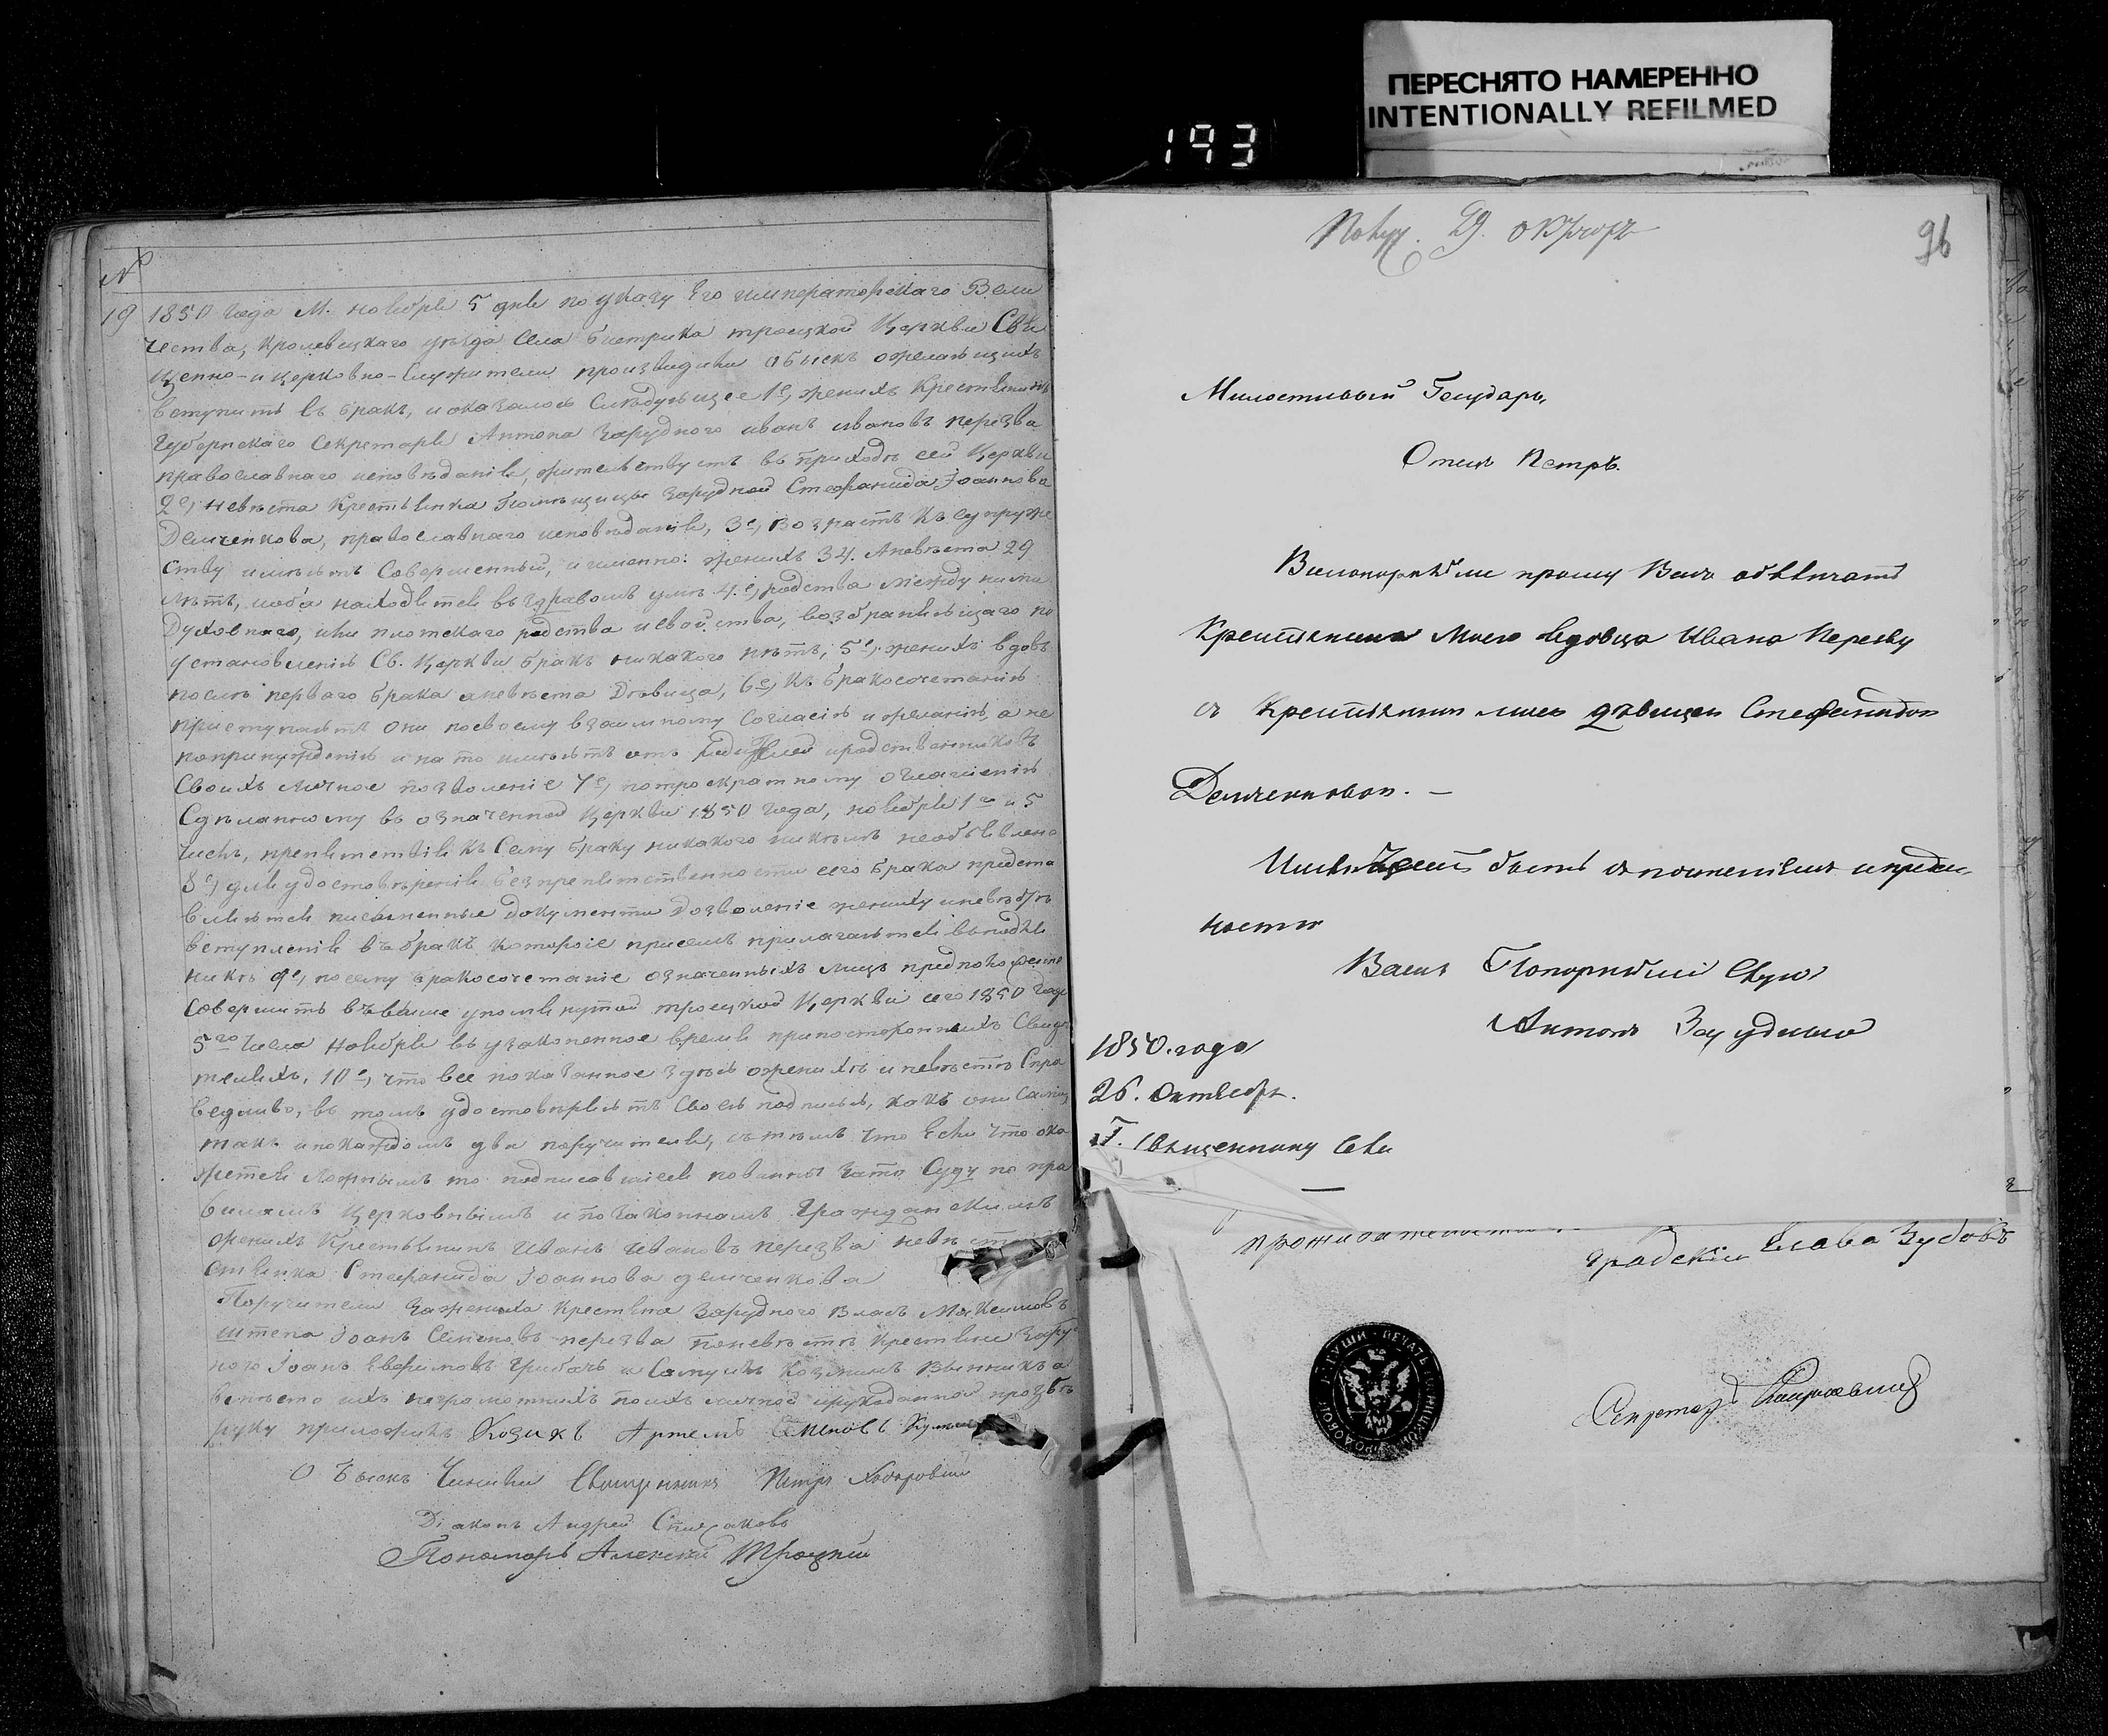 ПЕРЕСНЯТО НАМЕРЕННО
INTENTIONALLY REFILMED
193
№
19 1850 года М. ноября 5 дня по указу Его императорскаго Вели
чества, кролевецкаго уезда села быстрика троецкой Церкви Свя
щенно-и церковно-служители производили обыскъ ожелающихъ
вступить въ бракъ, и оказалось следующее 1е, женихъ крестянинъ
Губернскаго Секретаря Антона Зарудного иванъ ивановъ перезва
православнаго исповеданія, жительствуетъ въ приходе сей Церкви
2е, невеста крестянка Помещицы Зарудной Стефанида Іоаннова
Демченкова, православнаго исповеданія, 3е, возрастъ къ супруже
ству имеютъ Совершенный, и именно: женихъ 34. Аневеста 29
летъ, иоба находятся въ здравомъ уме 4.е, родства между ними
Духовнаго, или плотскаго родства и свойства, возбраняющаго по
установленію Св. Церкви бракъ никакого нетъ, 5е, женихъ вдовъ
после перваго брака аневеста Девица, 6е, къ бракосочетанію
приступаютъ они посвоему взаимному Согласію и желанію, а не
попринужденію и на то имеютъ отъ родителей
Своихъ личное позволеніе 7е, потроекратному оглашенію
Сделанному въ означенной Церкви 1850 года, ноября 1го и 5
числъ, препятствія къ Сему браку никакого никемъ необъявлено
8е, для удостоверенія безпрепятственности сего брака предста
вляются письменные документы дозволеніе жениху иневесте
вступленія въ бракъ которое присемъ прилагается
9е, посему бракосочетаніе означенныхъ лицъ предположено
Совершить въвыше упомянутой троецкой Церкви сего 1850 года
5го числа ноября въ узаконенное время припостороннихъ Свиде
теляхъ, 10е, что все показанное здесь ожених и невесте Спра
ведливо, въ томъ удостоверяютъ своею подписью, какъ они сами
такъ ипокаждомъ два поручителя, стемъ что Если что ока
жется ложнымъ то подписавшіеся повинны зато Суду по пра
виламъ Церковнымъ и позаконамъ Гражданскимъ
женихъ крестьянинъ Иванъ Ивановъ перезва
Стефанида Іоаннова демченкова
Поручители зажениха крестяна Зарудного Власъ Максимовъ
Іоанъ Семеновъ перезва поневесте крестяне Зару
ного Іоанъ Грибачъ и
вместо ихъ неграмотныхъ
руку приложилъ Козакъ Артемъ Семеновъ
Обыскъ Чинили Священникъ Петръ Ходоровскій
Діаконъ Андрей
Пономарь Алексей Троцкій
29. октября
96
Милостивый Государь,
Отецъ Петръ.
Всепокорнейше прошу Васъ обвенчать
Крестянина Моего вдовца Ивана Перезву
съ Крестянкою моею девицею Стефанидою
Демченковою. –
Имею честь быть съ почтеніемъ ипредан
ностю
Вашъ Покорнейшій Слуга
Антонъ Зарудный
1850. года
26. Октября.
Священнику
Градскій Глава Зубовъ
Секретарь